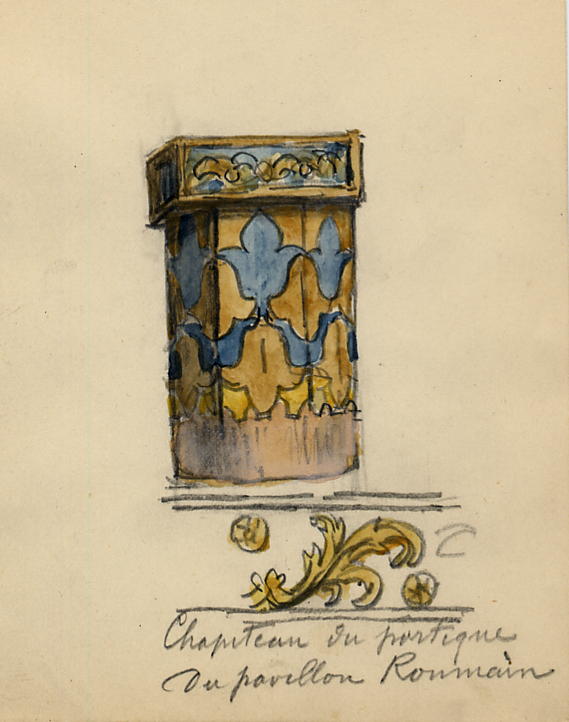 Chapiteau du portique
Du pavillon Roumain